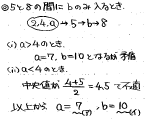 ◎5と8の間にbのみ入るとき.
(2,4,a)→5→b→8
(i) a>4のとき.
a=7, b=10となるが矛盾
(ii) a<4のとき.
中央値が 4+5/2 = 4.5で不適
以上から a=7, b=10